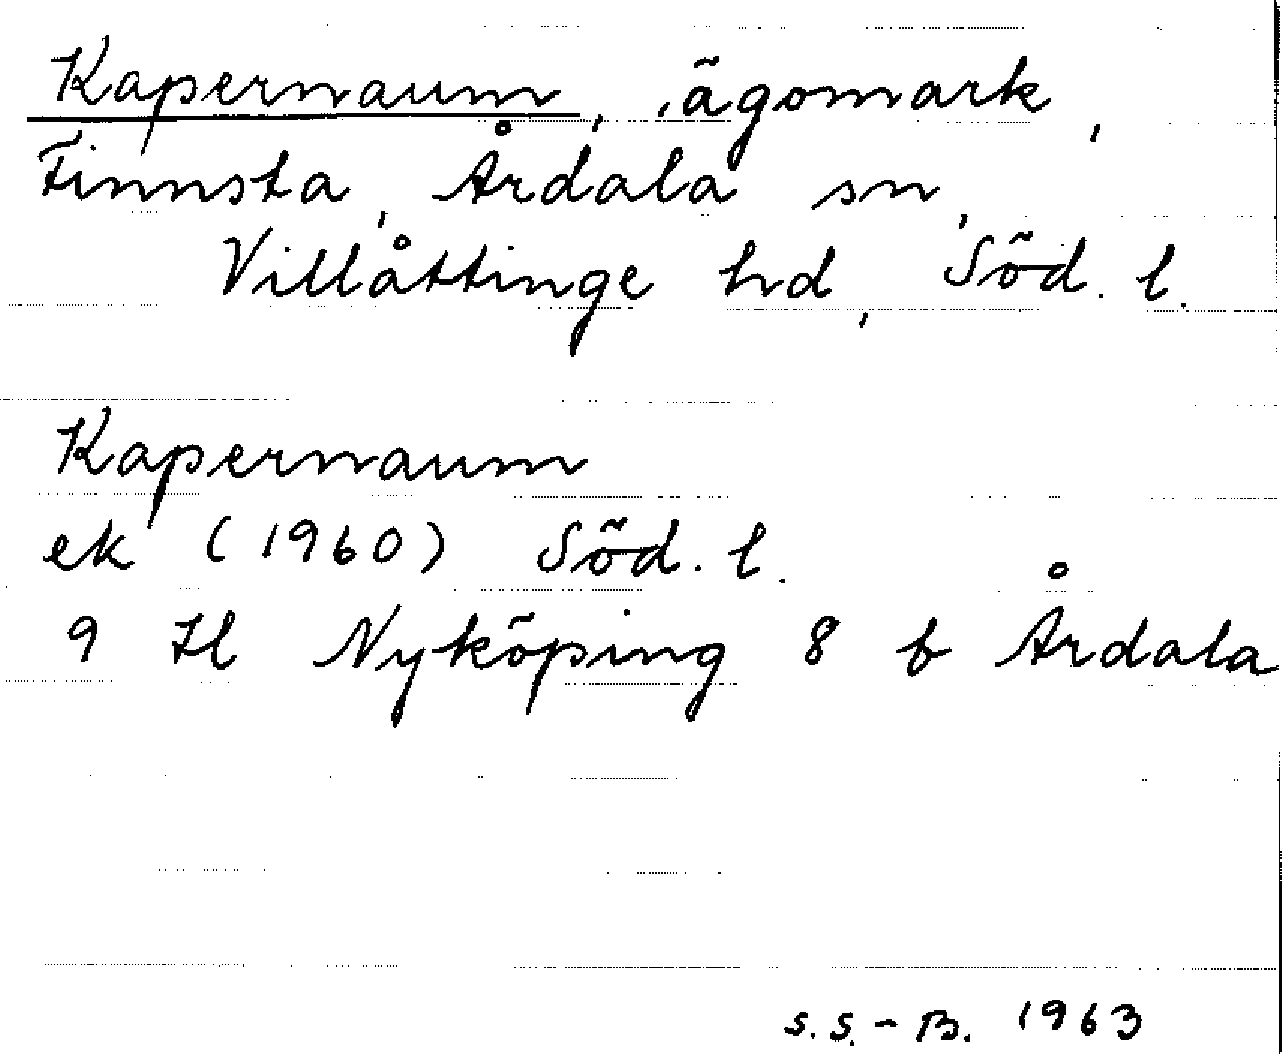 Kapernaum, ägomark,
Finnsta, Årdala sn,
Villåttinge hd, Söd. l.
Kapernaum
ek (1960) Söd. l.
9 H Nyköping 8 b Årdala
S.S.-B. 1963